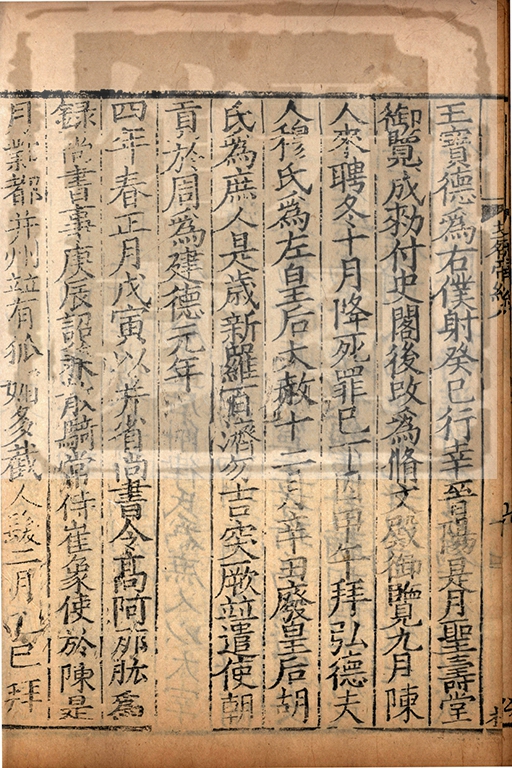 王寶德為右僕射癸巳行幸晉陽是月聖壽堂
御覽成勑付史閣後改為脩文殿御覽九月陳
人來聘冬十月降死罪已下囚甲午拜弘德夫
人穆氏為左皇后大赦十二月辛丑廢皇后胡
氏為庶人是歲新羅百濟勿吉突厥並遣使朝
貢於周為建德元年
四年春正月戊寅以并省尚書令高阿那肱為
録尚書事庚辰詔兼散騎常侍崔象使於陳是
月鄴都并州並有狐媚多截人髮二月乙巳拜